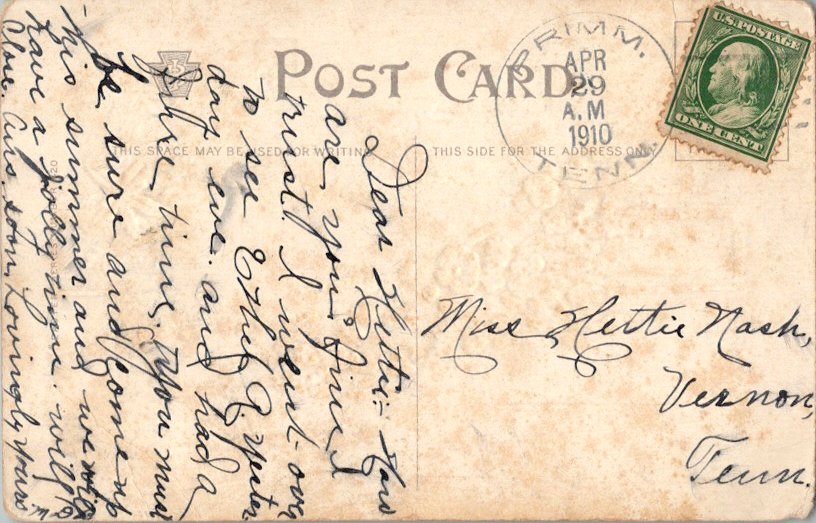 POST CARD
THIS SPACE MAY BE USED FOR WRITING
THIS SIDE FOR THE ADDRESS ONLY
PRIMM.
APR
29
A.M
1910
TENN.
U.S. POSTAGE
ONE CENT
Dear Hettie:- How
are you? Fine I
trust I went over
to see Ethel G. yester
day eve. and had a
fine time. You must
be sure and come up
this summer and we will
have a jolly time. will
Close. Ans. soon, Lovingly yours
Miss Hettie Nash,
Vernon,
Tenn.